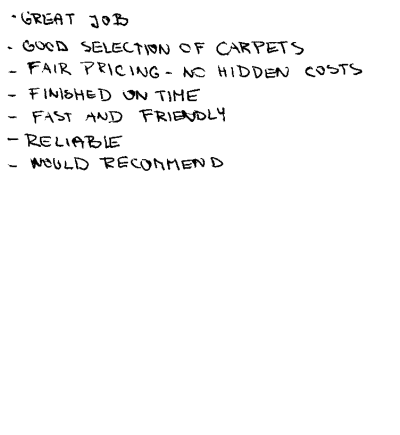 · GREAT JOB
· GOOD SELECTION OF CARPETS
- FAIR PRICING - NO HIDDEN COSTS
- FINISHED ON TIME
- FAST AND FRIENDLY
- RELIABLE
- WOULD RECOMMEND